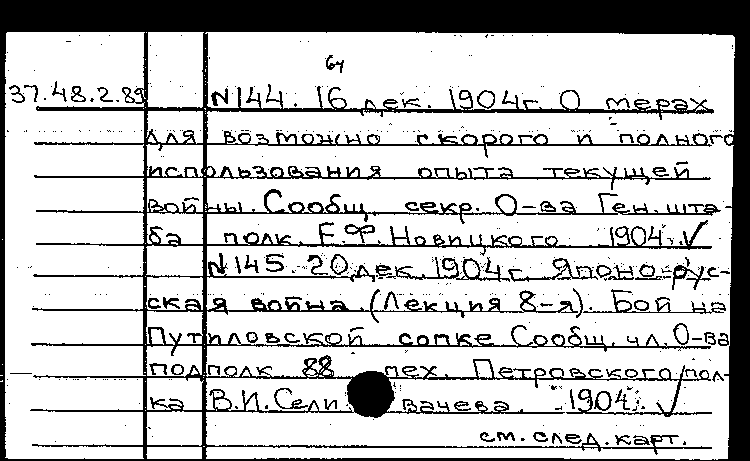 64
37.48.2.89 N144. 16 дек. 1904г. О мерах
для возможно скорого и полного
использования опыта текущей
войны. Сообщ. секр. О-ва Ген. шта-
ба полк. Е.Ф. Новицкого. 1904. ✓
N145. 20 дек. 1904г. Японо-рус-
ская война. (Лекция 8-я). Бой на
Путиловской сопке Сообщ. чл. О-ва
подполк. 88 пех. Петровского пол-
ка В.И. Сели вачева. 1904. ✓
см. след. карт.